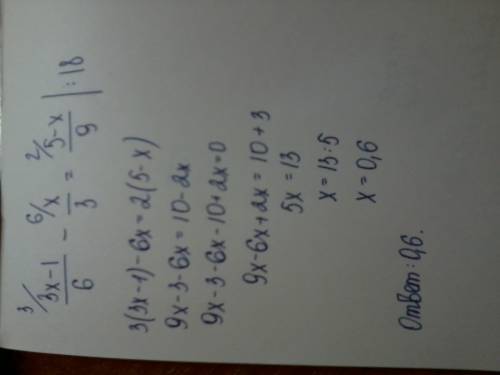 ³/ (3x-1)/6 - ⁶/ x/3 = ²/ (5-x)/9 | : 18
3(3x-1)-6x=2(5-x)
9x-3-6x=10-2x
9x-3-6x-10+2x=0
9x-6x+2x=10+3
5x=13
x=13:5
x=0,6
Ответ: 0,6.